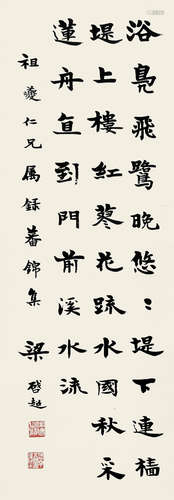 浴鳧飛鷺晚悠〻堤下連檣
堤上樓紅蓼花疏水國秋采
蓮舟直到門前溪水流
祖夔仁兄属録蕃錦集 梁啟超